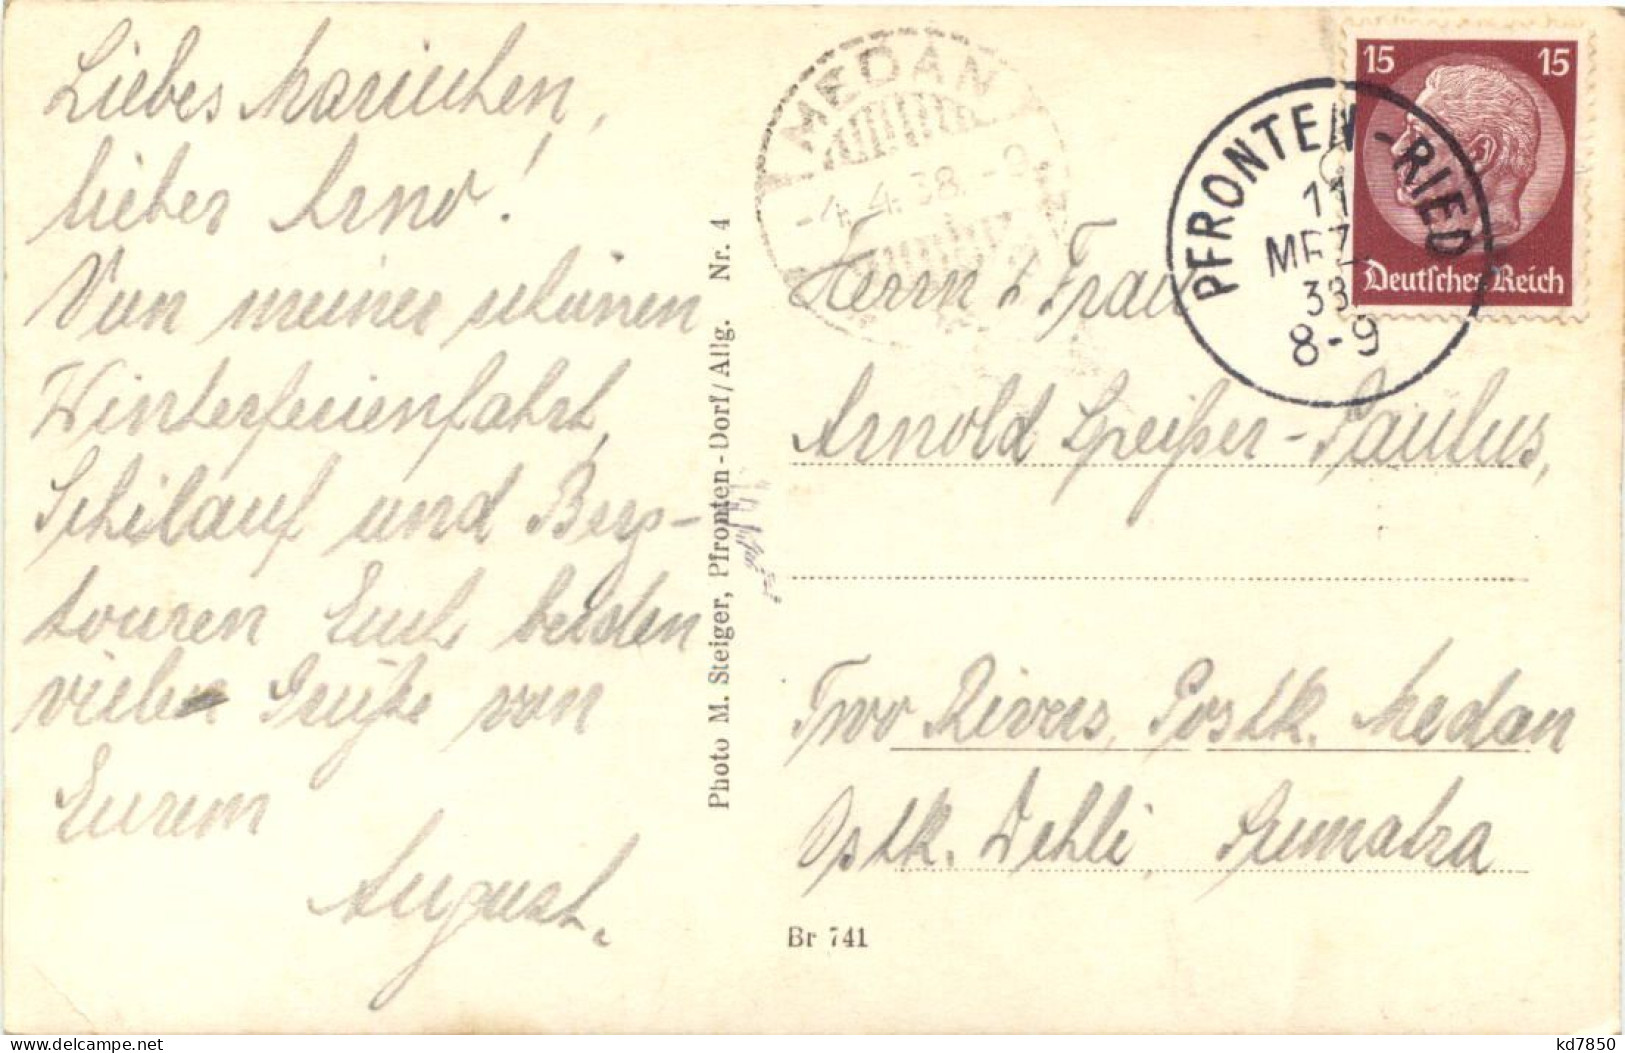 Liebes Mariechen,
lieber Arno!
Von meiner schönen
Winterferienfahrt,
Schilauf und Berg-
touren Euch beiden
vielen Grüße von
Eurem
August.
Photo M. Steiger, Pfronten-Dorf/Allg. Nr. 4
MEDAN
-4.4.38.-9
PFRONTEN-RIED
11
MRZ
38
8-9
15 15
Deutsches Reich
Herrn & Frau
Arnold Speißer-Paulus,
Two Rivers, Postk. Medan
Ostk. Dehli, Sumatra
Br 741
kd7850